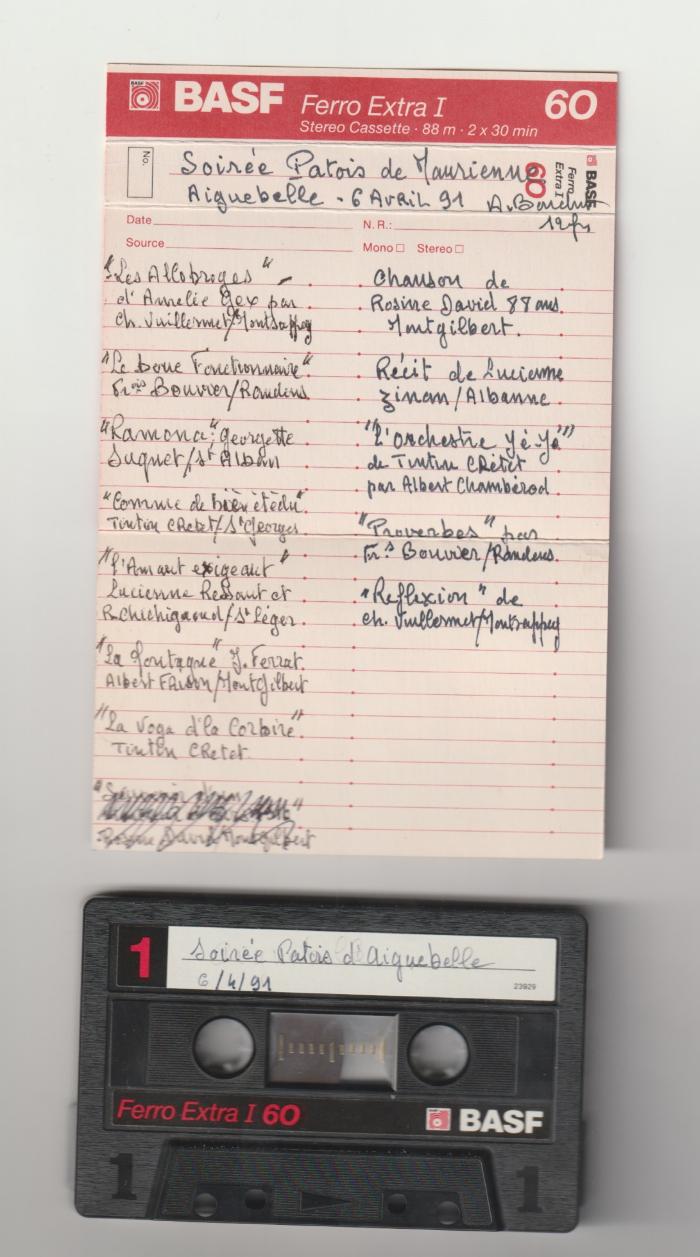 BASF Ferro Extra I 60
Stereo Cassette · 88 m · 2 x 30 min
No.
Soirée Patois de Maurienne
Aiguebelle - 6 Avril 91 A.
60
Ferro Extra I
BASF
Date
Source
N. R.:
Mono Stereo
"Les Allobroges"
d'Amelie Gex par
Ch. Vuillermet/Montsapey
"Le boue Fonctionnaire"
Frs Bouvier/Randens
"Ramona" georgette
Suquet/St Alban
"Comme de bièn étédu"
Tintin CReTet/St Georges
"l'Amant exigeant"
Lucienne et
R.Chichignoud/St Léger
"La Montagne" J. Ferrat
Albert /MontGilbert
"La Voga d'la Corbire"
Tintin CReTet
Rosine David Montgilbert
Chanson de
Rosine David 88 ans
Montgilbert.
Récit de Lucienne
Zinam/Albanne
"L'orchestre Yé-Yé"
de Tintin CRéTeT
par Albert Chambérod
"Proverbes" par
Frs Bouvier/Randens
"Reflexion" de
ch. Vuillermet/Montsappey
1
Soirée Patois d'Aiguebelle
6/4/91
23929
Ferro Extra I 60
BASF
1 1